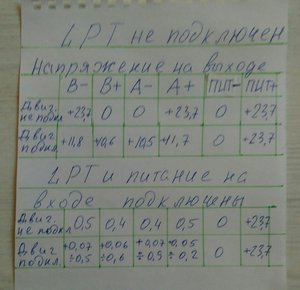 LPT не подключен
Напряжение на выходе
B- B+ A- A+ ПИТ- ПИТ+
Двиг. не подкл +23,7 0 0 +23,7 0 +23,7
Двиг. подкл. +11,8 +0,6 +10,5 +11,7 0 +23,7
LPT и питание на
входе подключены
Двиг. не подкл 0,5 0,4 0,4 0,5 0 +23,7
Двиг. подкл. +0,07 ÷0,5 +0,06 ÷0,6 +0,07 ÷0,5 +0,05 ÷0,2 0 +23,7